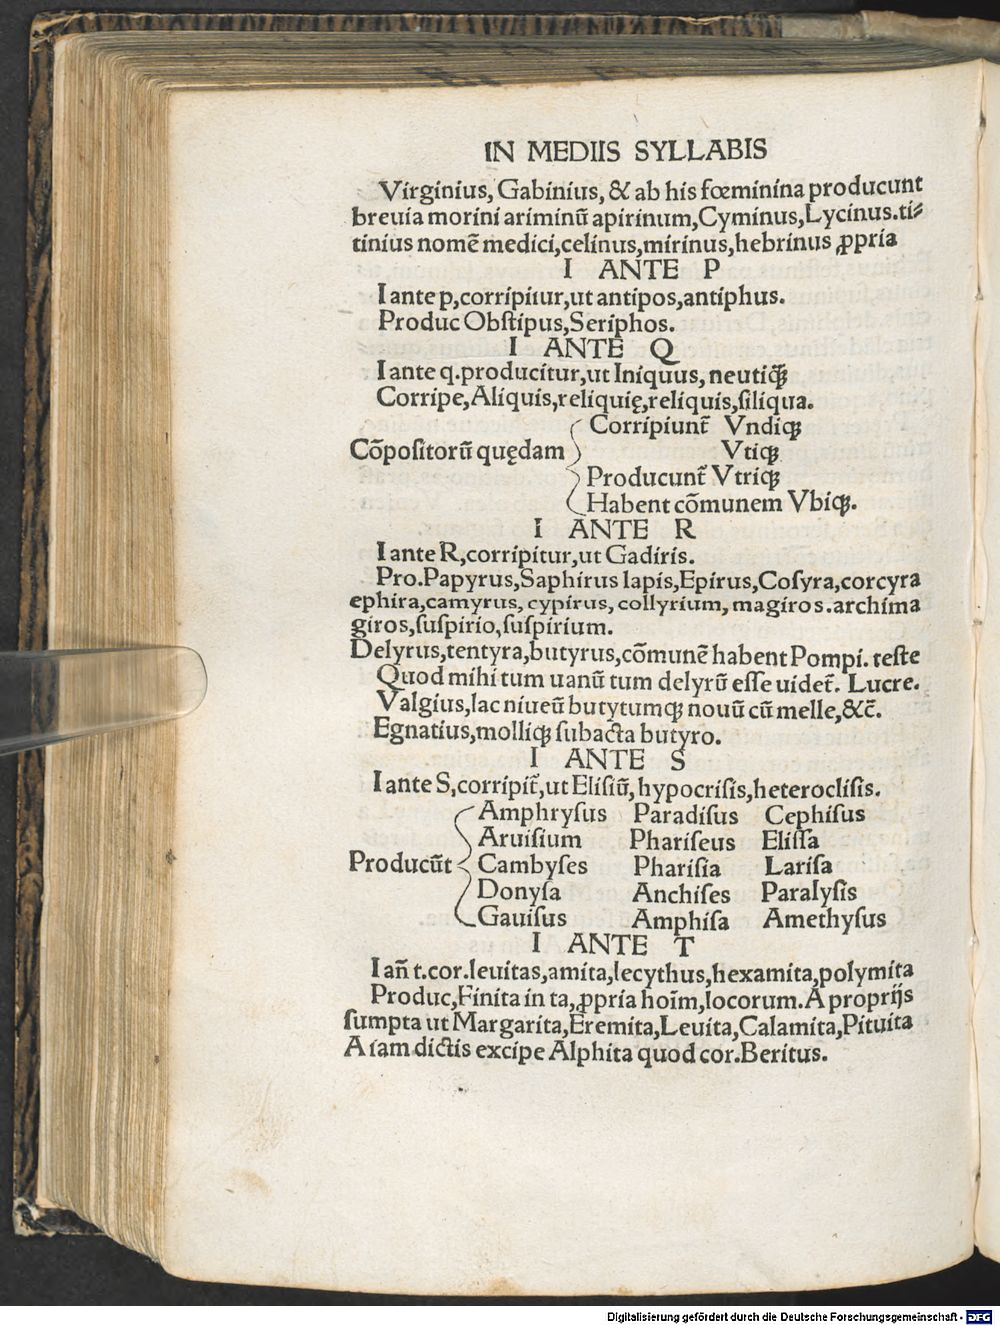 IN MEDIIS SYLLABIS
Virginius, Gabinius, & ab his fœminina producunt
breuia morini ariminū apirinum, Cyminus, Lycinus. ti⸗
tinius nomē medici, celinus, mirinus, hebrinus ꝓpria
I ANTE P
I ante p, corripitur, ut antipos, antiphus.
Produc Obſtipus, Seriphos.
I ANTE Q
I ante q. producitur, ut Iniquus, neutiq̄ꝫ
Corripe, Aliquis, reliquię, reliquis, ſiliqua.
Corripiunt̄ Vndiqꝫ
Cōpoſitorū quędam Vtiqꝫ
Producunt̄ Vtriqꝫ
Habent cōmunem Vbiqꝫ.
I ANTE R
I ante R, corripitur, ut Gadiris.
Pro. Papyrus, Saphirus lapis, Epirus, Coſyra, corcyra
ephira, camyrus, cypirus, collyrium, magiros. archima
giros, ſuſpirio, ſuſpirium.
Delyrus, tentyra, butyrus, cōmunē habent Pompi. teſte
Quod mihi tum uanū tum delyrū eſſe uidet̄. Lucre.
Valgius, lac niueū butytumqꝫ nouū cū melle, &c̄.
Egnatius, molliqꝫ ſubacta butyro.
I ANTE S
I ante S, corripit̄, ut Eliſiū, hypocriſis, heterocliſis.
Amphryſus Paradiſus Cephiſus
Aruiſium Phariſeus Eliſſa
Producūt Cambyſes Phariſia Lariſa
Donyſa Anchiſes Paralyſis
Gauiſus Amphiſa Amethyſus
I ANTE T
I an̄ t. cor. leuitas, amita, lecythus, hexamita, polymita
Produc, Finita in ta, ꝓpria hoīm, locorum. A proprijs
ſumpta ut Margarita, Eremita, Leuita, Calamita, Pituita
A iam dictis excipe Alphita quod cor. Beritus.
Digitalisierung gefördert durch die Deutsche Forschungsgemeinschaft - DFG